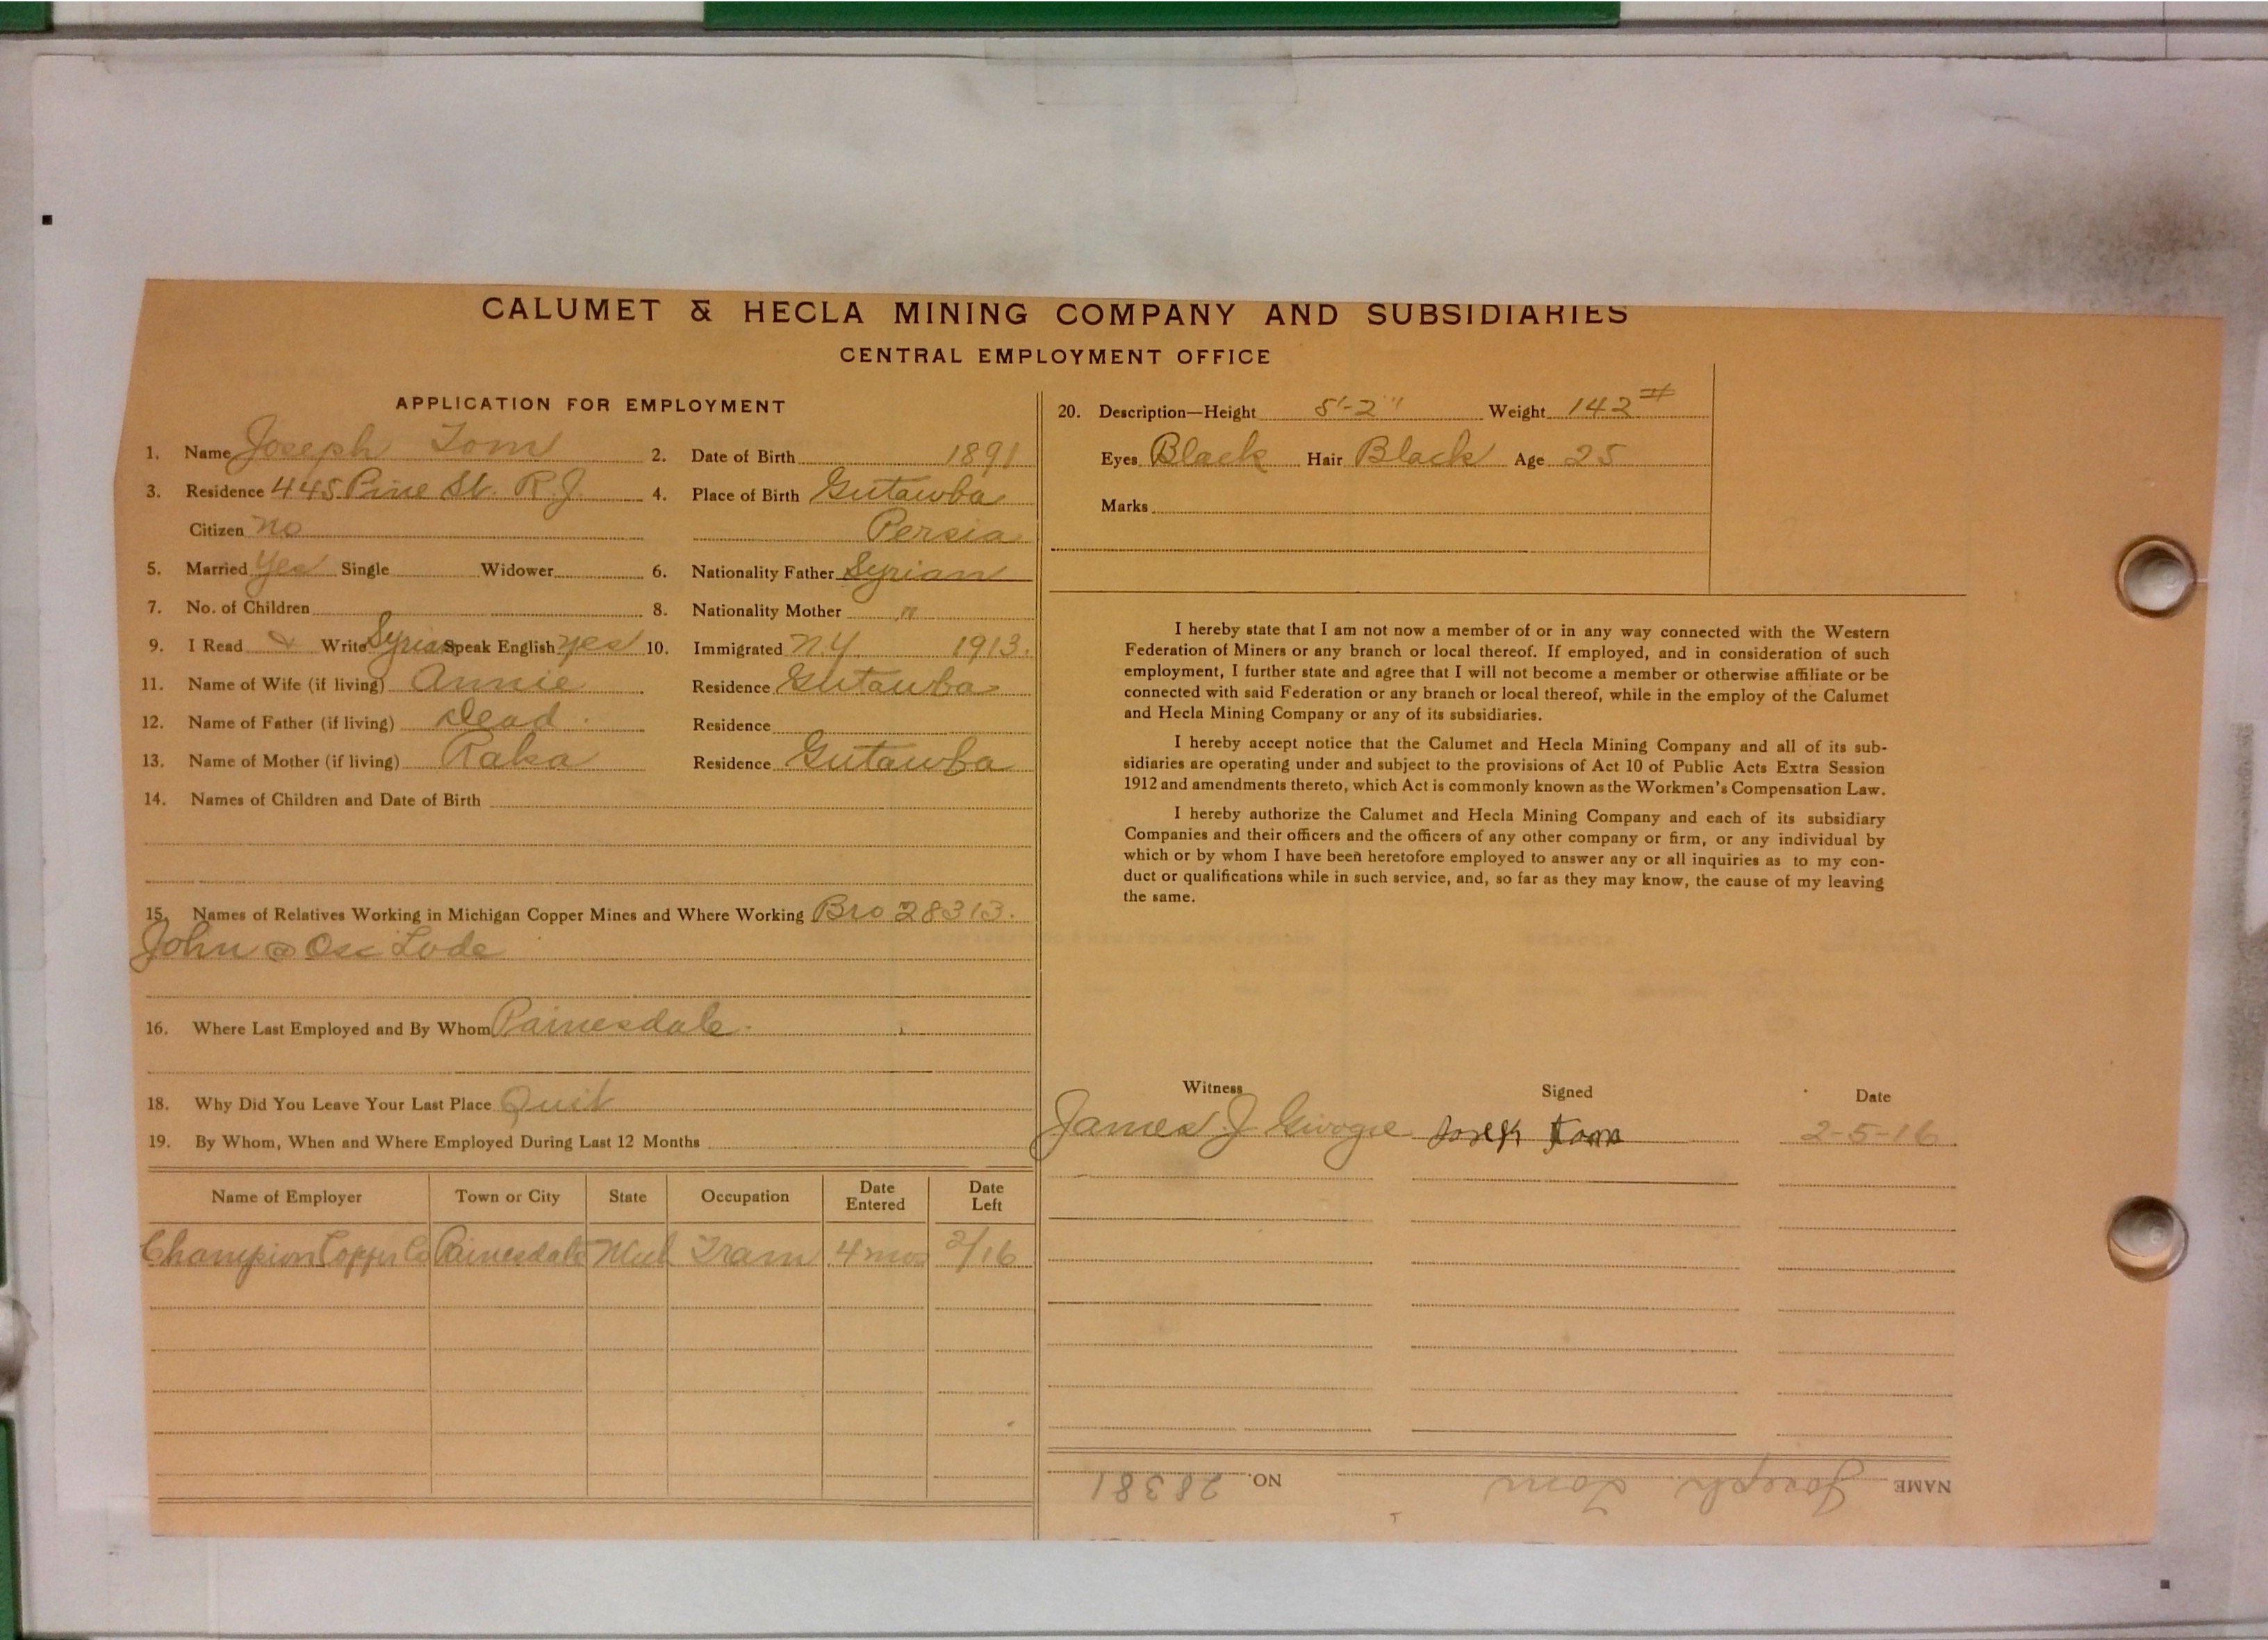 CALUMET & HECLA MINING COMPANY AND SUBSIDIARIES
CENTRAL EMPLOYMENT OFFICE
APPLICATION FOR EMPLOYMENT
1. Name Joseph Tom 2. Date of Birth 1891
3. Residence 445 Pine St. R.J. 4. Place of Birth Gutawba
Citizen no Persia
5. Married Yes Single Widower 6. Nationality Father Syrian
7. No. of Children 8. Nationality Mother "
9. I Read & Write Syrian Speak English yes 10. Immigrated N.Y. 1913.
11. Name of Wife (if living) Annie Residence Gutawba
12. Name of Father (if living) Dead. Residence
13. Name of Mother (if living) Raka Residence Gutawba
14. Names of Children and Date of Birth
15. Names of Relatives Working in Michigan Copper Mines and Where Working Bro 28313.
John @ Osc Lode
16. Where Last Employed and By Whom Painesdale.
18. Why Did You Leave Your Last Place Quit
19. By Whom, When and Where Employed During Last 12 Months
Name of Employer Town or City State Occupation Date Entered Date Left
Champion Copper Co Painesdale Mich Tram 4 mos 2/16
20. Description—Height 5'-2" Weight 142#
Eyes Black Hair Black Age 25
Marks
I hereby state that I am not now a member of or in any way connected with the Western
Federation of Miners or any branch or local thereof. If employed, and in consideration of such
employment, I further state and agree that I will not become a member or otherwise affiliate or be
connected with said Federation or any branch or local thereof, while in the employ of the Calumet
and Hecla Mining Company or any of its subsidiaries.
I hereby accept notice that the Calumet and Hecla Mining Company and all of its sub-
sidiaries are operating under and subject to the provisions of Act 10 of Public Acts Extra Session
1912 and amendments thereto, which Act is commonly known as the Workmen's Compensation Law.
I hereby authorize the Calumet and Hecla Mining Company and each of its subsidiary
Companies and their officers and the officers of any other company or firm, or any individual by
which or by whom I have been heretofore employed to answer any or all inquiries as to my con-
duct or qualifications while in such service, and, so far as they may know, the cause of my leaving
the same.
Witness Signed Date
James J. Joseph Tom 2-5-16
NAME Joseph Tom NO. 28381